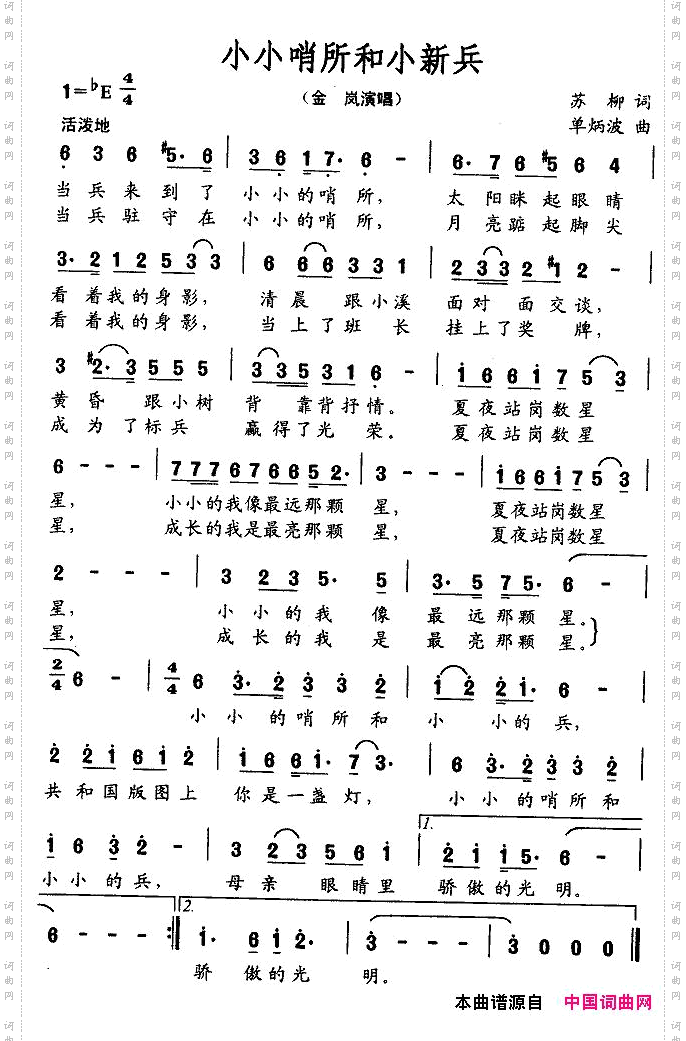 小小哨所和小新兵
1=♭E 4/4
（金 岚演唱）
苏 柳 词
活泼地
单炳波 曲
6 3 6 #5· 6 | 3 6 1 7· 6 - | 6· 7 6 #5 6 4 |
当兵来到了 小小的哨所， 太阳眯起眼睛
当兵驻守在 小小的哨所， 月亮踮起脚尖
3· 2 1 2 5 3 3 | 6 6 6 3 3 1 | 2 3 3 2 2 #1 2 - |
看着我的身影， 清晨 跟小溪 面对 面交谈，
看着我的身影， 当上了班长 挂上了奖 牌，
3 #2· 3 5 5 5 | 3 3 5 3 1 6 - | 1 6 6 1 7 5 3 |
黄昏 跟小树 背 靠背抒情。 夏夜站岗数星
成为了标兵 赢得了光荣。 夏夜站岗数星
6 - - - | 7 7 7 6 7 6 6 5 2· | 3 - - - | 1 6 6 1 7 5 3 |
星， 小小的我像最远那颗 星， 夏夜站岗数星
星， 成长的我是最亮那颗 星， 夏夜站岗数星
2 - - - | 3 2 3 5· 5 | 3· 5 7 5· 6 - |
星， 小小的我 像 最远那颗星。
星， 成长的我 是 最亮那颗星。
2/4 6 - | 4/4 6 3· 2 3 3 2 | 1 2 2 1· 6 - |
小小的哨所和 小 小的兵，
2 2 1 6 1 2 | 1 6 6 1· 7 3· | 6 3· 2 3 3 2 |
共和国版图上 你是一盏灯， 小小的哨所和
1 6 3 2 - | 3 2 3 5 6 5 | 1. 2 1 1 5· 6 - |
小小的兵， 母亲 眼睛里 骄傲的光明。
6 - - - :| 2. 1· 6 1 2· | 3 - - - | 3 0 0 0 ‖
骄 傲的光 明。
本曲谱源自 中国词曲网
词曲网